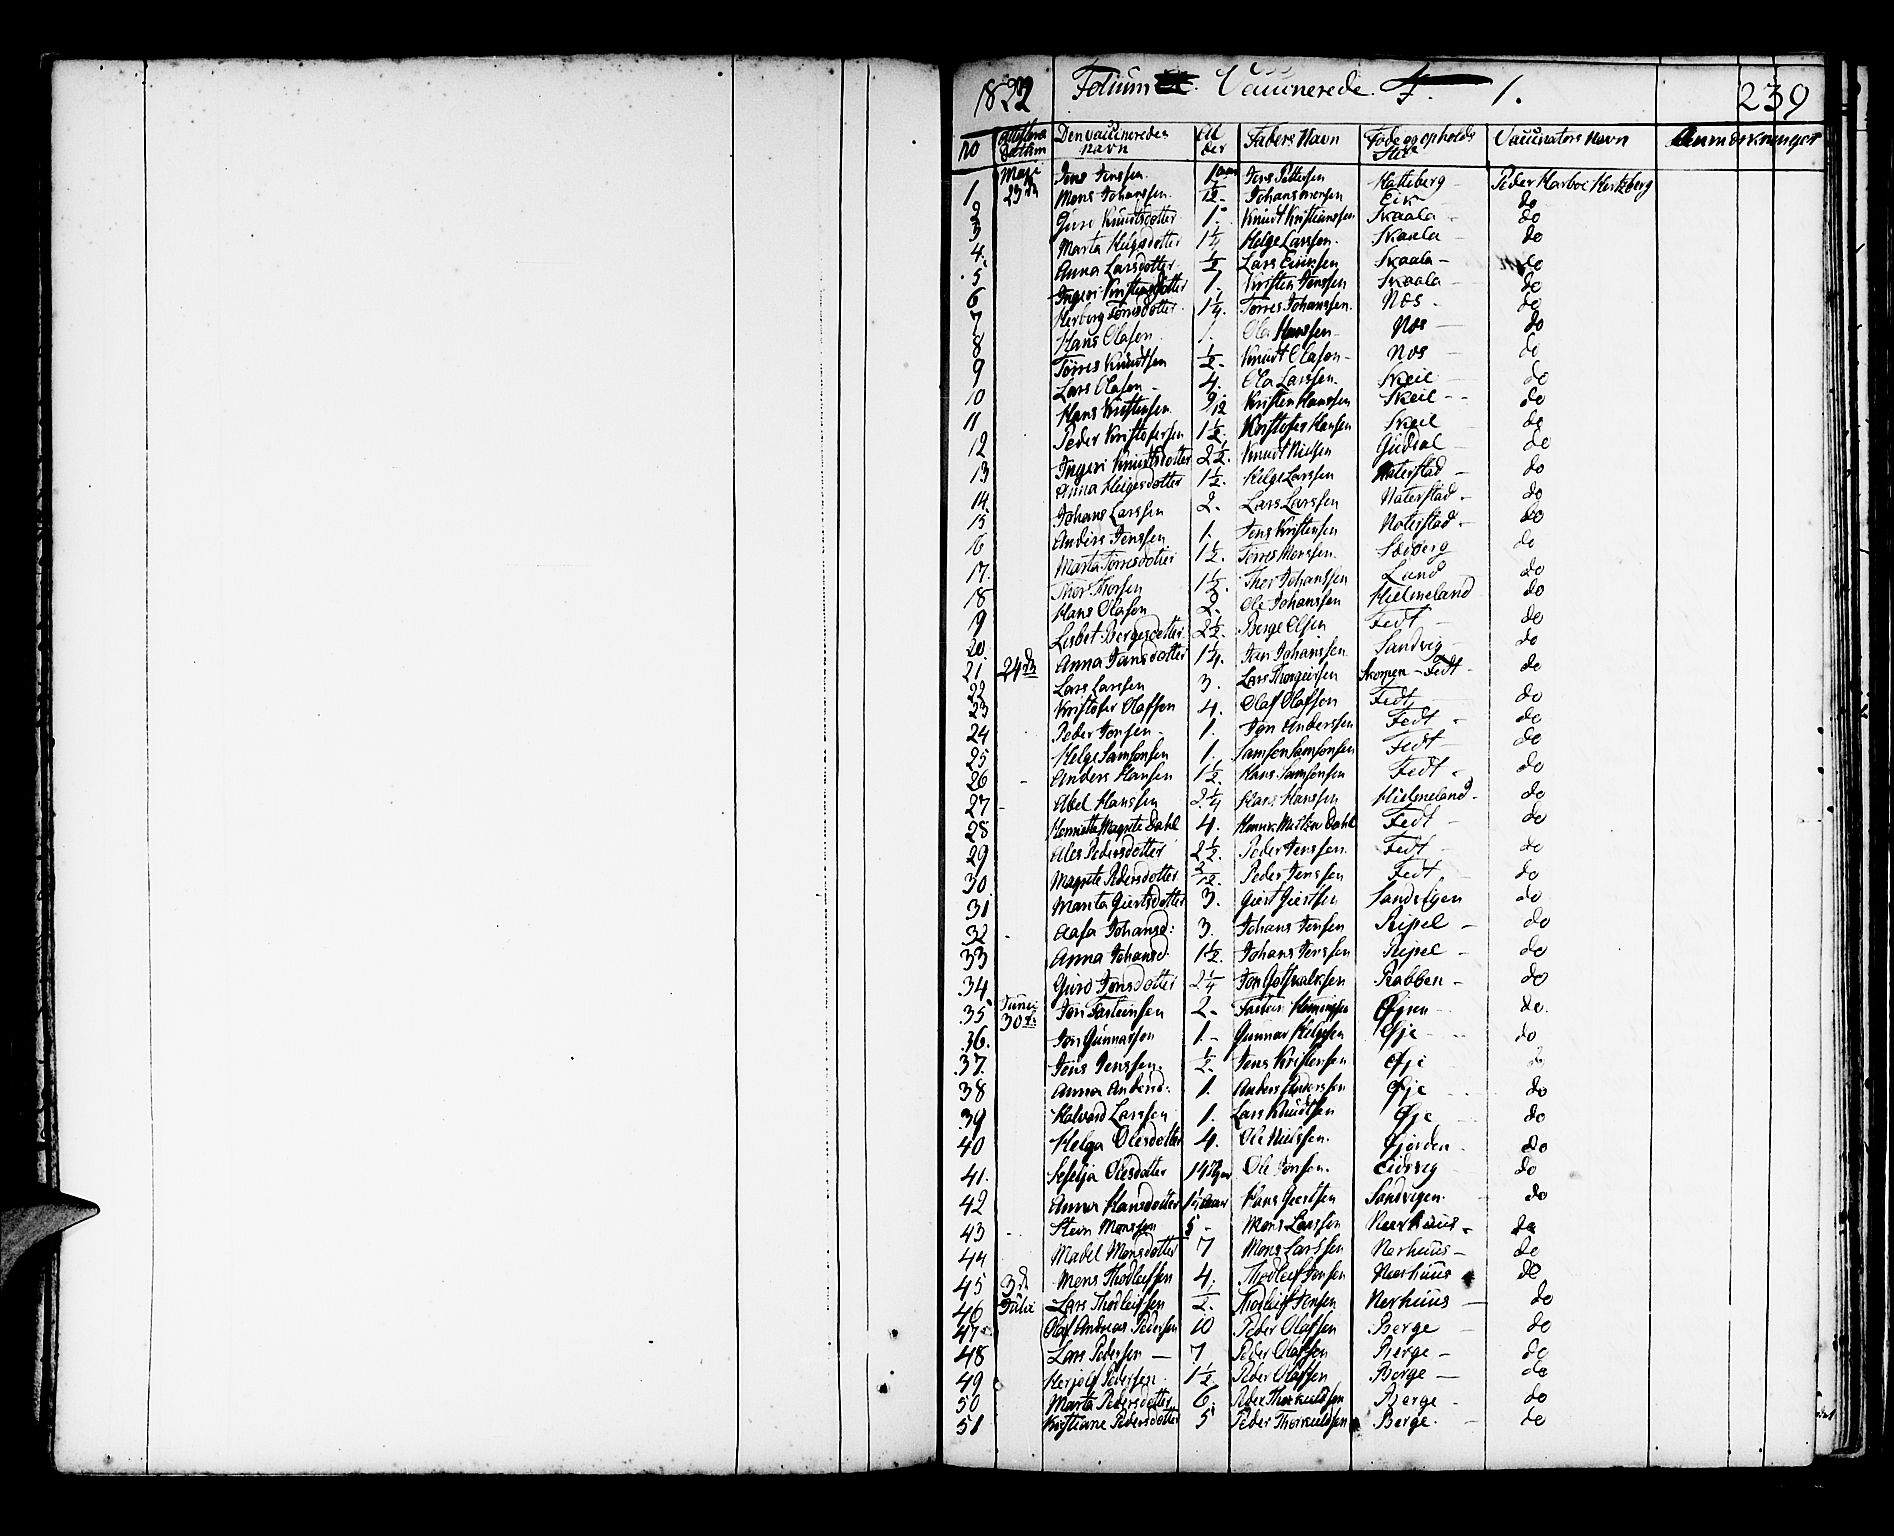 1822 Folium Vaccinerede F. 1. 239
No Attestens Datum Den vaccineredes Navn Alder Faders Navn Føde og opholds Sted Vaccinators Navn Anmærkninger
1. Maji 23de Jens Jenssen 1 aar Jens Pettersen Hatteberg Peder Harboe Hertzberg
2 Mons Johanssen Johans Monsen Eik do
3 Guro Knudtsdotter 1. Knudt Kristianssen Skaala do
4. Marta Helgesdotter 1 1/4 Helge Larssen Skaala do
5 Anna Larsdotter 1/2 Lars Eriksen Skaala do
6 Ingeri Kristensdotter 1. Kristen Jenssen Skaala do
7 Herborg Torresdotter 1 1/4 Torres Johanssen Nøs do
8 Hans Olason 1. Ola Hanssen Nøs do
9 Tørres Knudtsen 1/2 Knudt Olason Nøs do
10 Lars Olason 4. Ola Larssen Skeil do
11 Hans Kristensen 9/12 Kristen Hanssen Skeil do
12 Peder Kristofersen 1 1/2 Kristofer Hansen Skeil do
13 Ingeri Knudtsdotter 2 1/2 Knudt Nielsen Gudsal do
14 Anna Helgesdotter 1 1/2 Helge Larssen Naterstad do
15 Johans Larssen 2. Lars Larssen Naterstad do
16 Anders Jenssen 1. Jens Kristensen Naterstad do
17. Marta Torresdotter 1 1/2 Torres Monssen Sæberg do
18 Thor Thorsen 1 1/2 Thor Johanssen Lund do
19 Hans Olason 2. Ole Johanssen Hielmeland do
20. Lisbet Børgesdotter 2 1/2 Børge Olsen Fedt do
21 24de Anna Jansdotter 1 1/4 Jan Johanssen Sandvig do
22 Lars Larssen 3. Lars Thorgeirsen Skorpen - Fedt do
23 Kristofer Olafson 4. Olaf Olafson Fedt do
24 Peder Jonsen 1. Jon Anderssen Fedt do
25 Helge Samsonsen 1. Samson Samsonsen Fedt do
26 Anders Hansen 1 1/2 Hans Samsonsen Fedt do
27 Abel Hanssen 2 1/4 Hans Hanssen Hielmeland do
28 Henrietta Magrete Dahl 4. Henrik Meltzer Dahl Fedt do
29 Ales Pedersdotter 2 1/2 Peder Jenssen Fedt do
30 Magrete Pedersdotter 2/12 Peder Jenssen Fedt do
31 Marita Giertsdotter 3. Giert Giertsen Sandvigen do
32 Aasa Johansd: 3. Johans Jensen Ripel do
33 Anna Johansd. 1 1/2 Johans Jenssen Ripel do
34 Guro Jonsdotter 2 1/4 Jon Gotskalksen Rabben do
35 Junii 30te Jon Fasteinsen 2. Fastein Øfjren do.
36. Jon Gunnarson 1. Gunnar Helgesen Øfje do
37. Jens Jenssen. 1/2 Jens Kristensen Øfje do
38 Anna Andersd: 1. Anders Anderssen Øfje do
39 Halvard Larssen 1. Lars Knudtsen Øfje do
40 Helga Olesdotter 4. Ole Nielssen. Gjerden do
41. Seselja Olesdotter 14 Uger Ole Jonsen. Eidsvig do
42 Anna Hansdotter 1 1/2 aar Hans Giertsen Sandvigen do
43 Stein Monssen 5 Mons Larssen Neerhuus do
44 Madel Monsdotter 7 Mons Larssen Nerhuus do
45 3de Mons Thodleifsen 4. Thodleif Jonsen Neerhuus do
46 Julii Lars Thodleifsen 1/2. Thodleif Jonsen Nerhuus do
47 Olaf Andreas Pedersen 10 Peder Olafsen Berge do
48 Lars Pedersen 7 Peder Olafson Berge do
49 Herjolf Pedersen 1 1/2 Peder Olafsen Berge do
50 Marta Pedersdotter 6. Peder Thorkieldsen Berge do
51 Kristiane Pedersdotter 5 Peder Thorkieldsen Berge. do